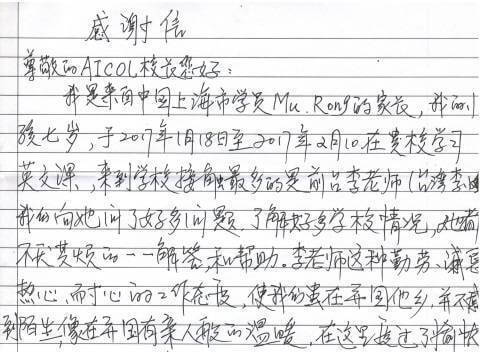 感谢信
尊敬的AICOL校长您好:
我是来自中国上海市学员Mu. Rong的家长, 我的小
孩七岁, 于2017年1月18日至2017年2月10.在贵校学习
英文课, 来到学校接触最多的是前台李老师(台湾李
我们向她问了好多问题. 了解好多学校情况, 她都
不厌其烦的一一解答, 和帮助。李老师这种勤劳、诚恳
热心、而寸心的工作态度, 使我们虽在异国他乡, 并不感
到陌生, 像在异国有亲人般的温暖, 在这里度过了愉快